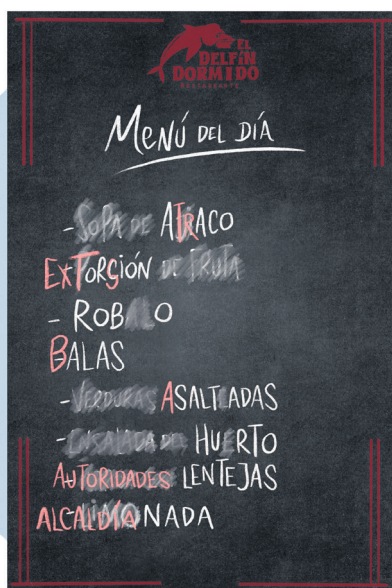 EL
DELFÍN
DORMIDO
RESTAURANTE
MENÚ DEL DÍA
- SOPA DE ATRACO
EXTORSIÓN DE FRUTA
- ROBO
BALAS
- VERDURAS ASALTADAS
- ENSALADA DEL HURTO
AUTORIDADES LENTEJAS
ALCALDÍA NADA